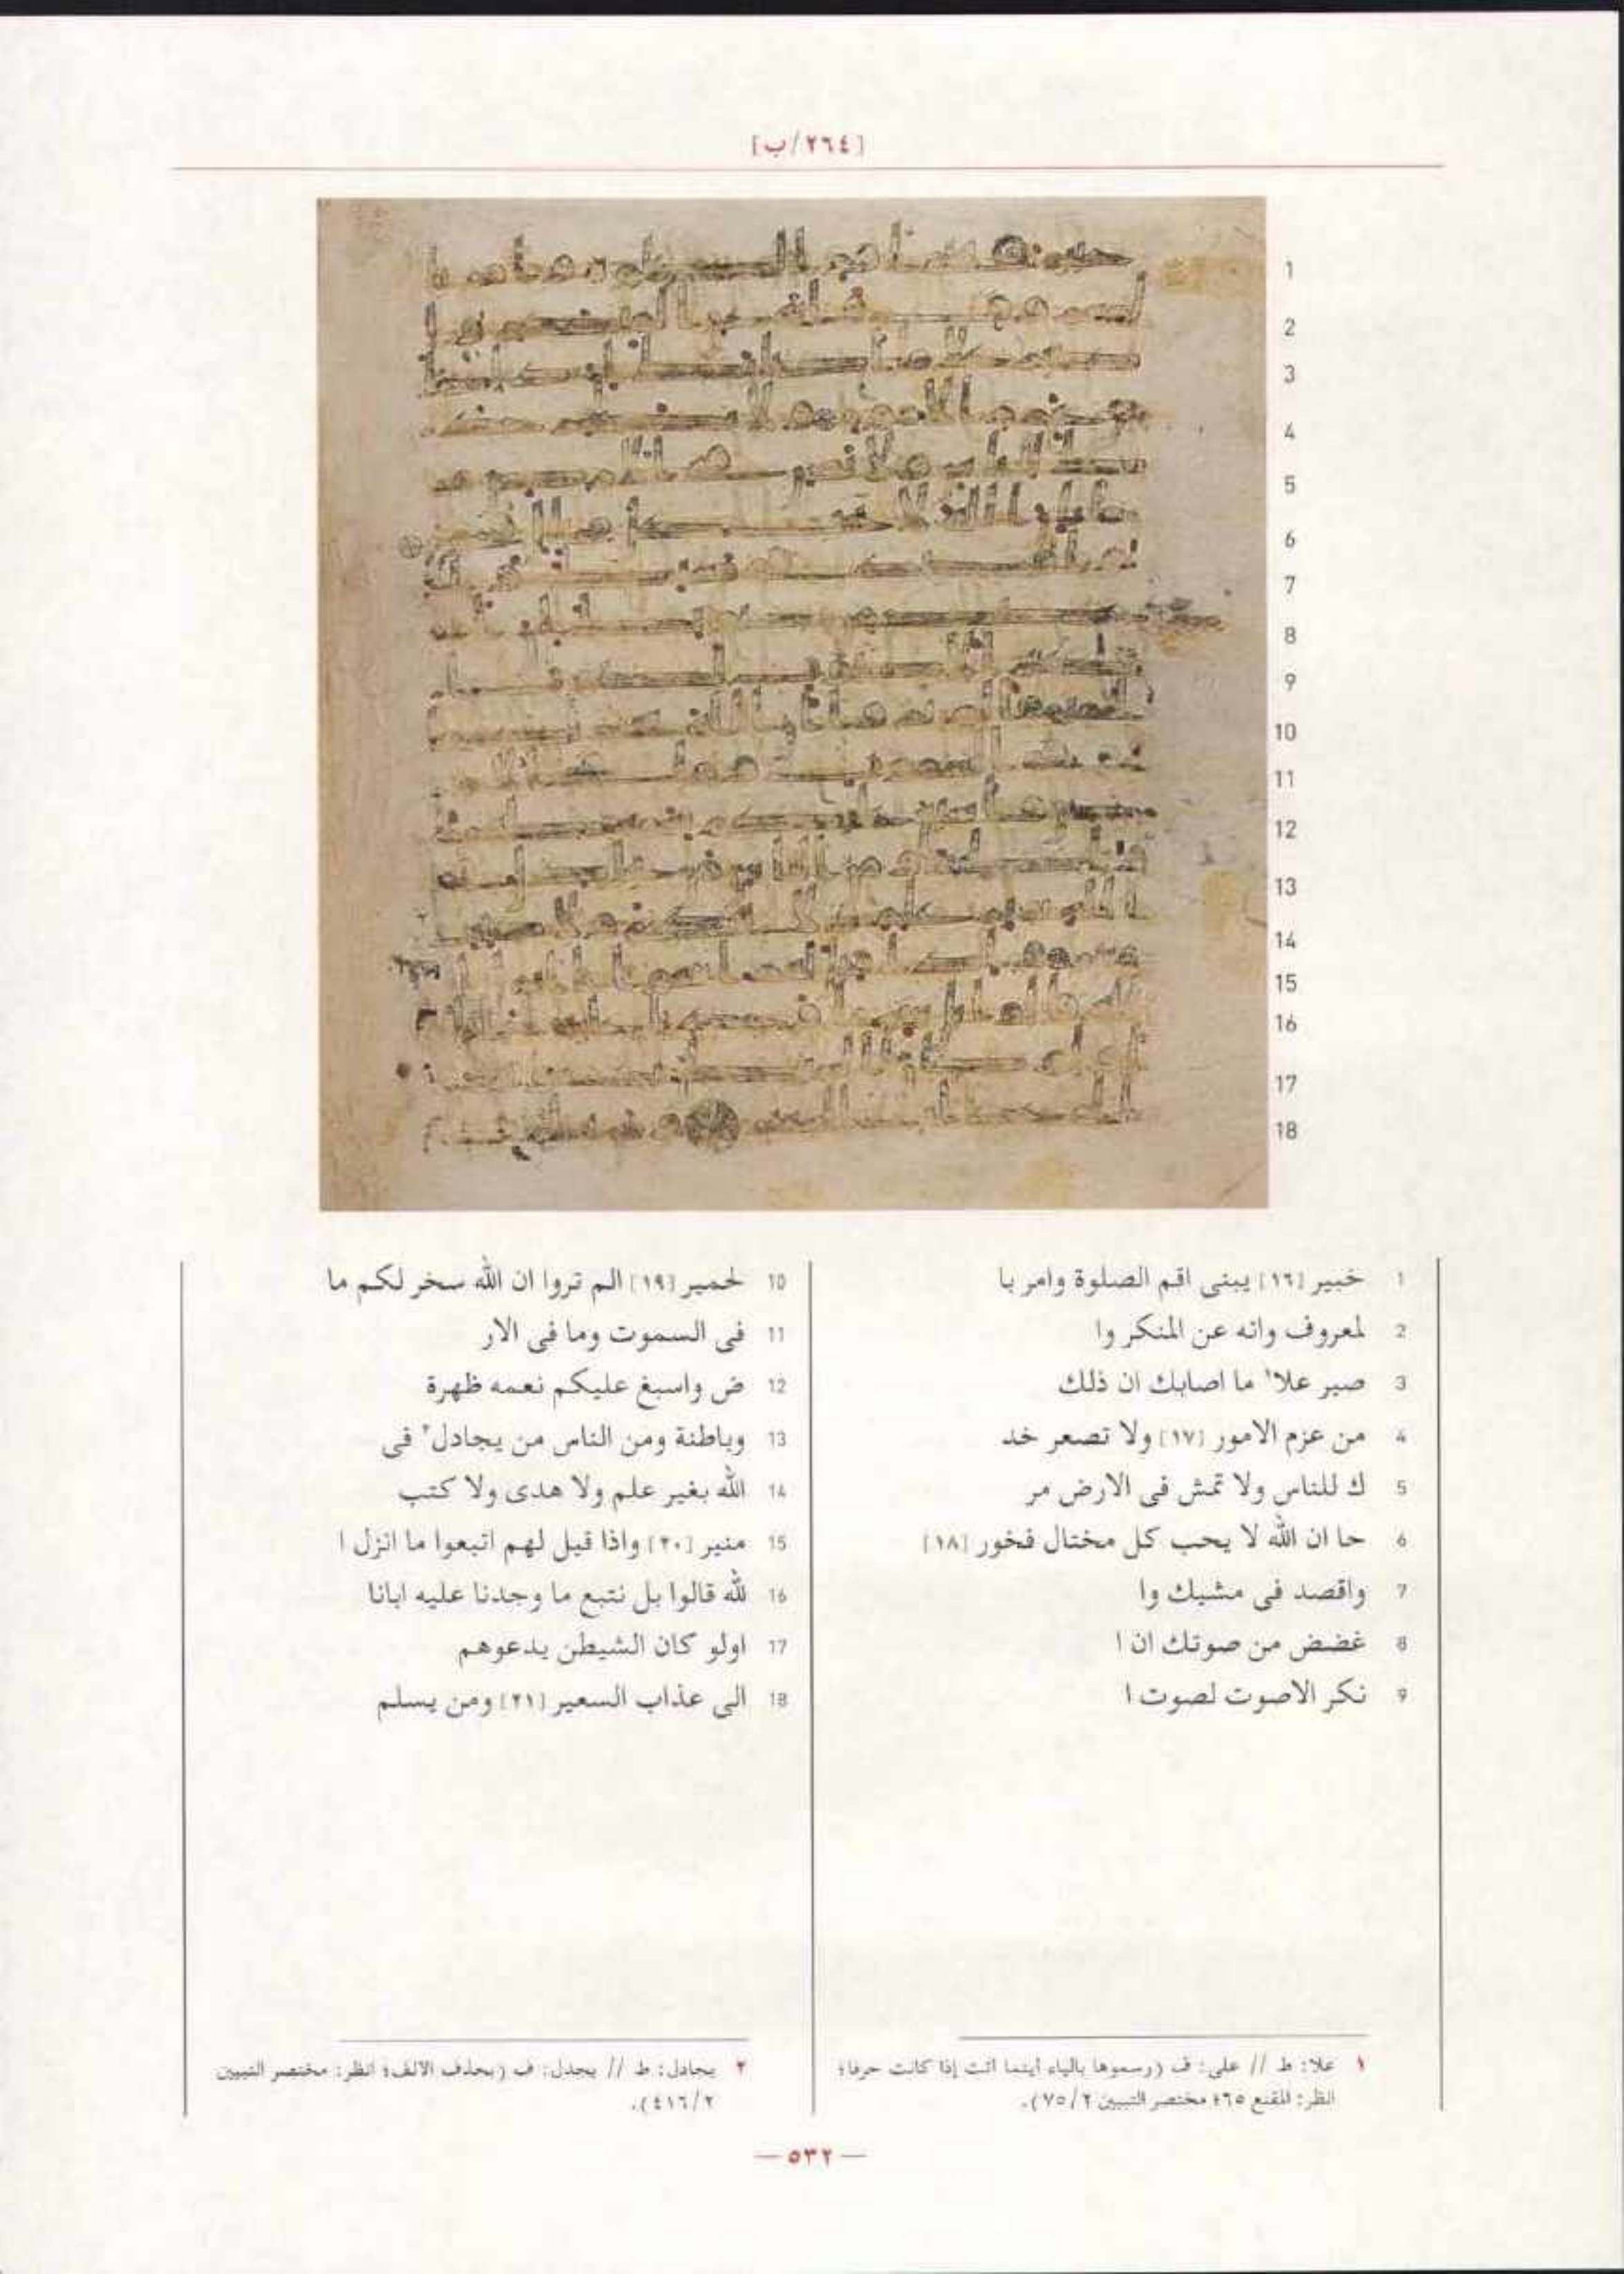 [٢٦٤/ب]
1 خبير [١٦] يبنى اقم الصلوة وامر با
2 لمعروف وانه عن المنكر وا
3 صبر علا١ ما اصابك ان ذلك
4 من عزم الامور [١٧] ولا تصعر خد
5 ك للناس ولا تمش فى الارض مر
6 حا ان الله لا يحب كل مختال فخور [١٨]
7 واقصد فى مشيك وا
8 غضض من صوتك ان ا
9 نكر الاصوت لصوت ا
10 لحمير [١٩] الم تروا ان الله سخر لكم ما
11 فى السموت وما فى الار
12 ض واسبغ عليكم نعمه ظهرة
13 وباطنة ومن الناس من يجادل٢ فى
14 الله بغير علم ولا هدى ولا كتب
15 منير [٢٠] واذا قيل لهم اتبعوا ما انزل ا
16 لله قالوا بل نتبع ما وجدنا عليه ابانا
17 اولو كان الشيطن يدعوهم
18 الى عذاب السعير [٢١] ومن يسلم
١ علا: ط // على: ف (رسموها بالياء أينما أتت إذا كانت حرفا؛
انظر: المقنع ٦٥؛ مختصر التبيين ٧٥/٢).
٢ يجادل: ط // يجدل: ف (بحذف الالف؛ انظر: مختصر التبيين
٤١٦/٢).
— ٥٣٢ —